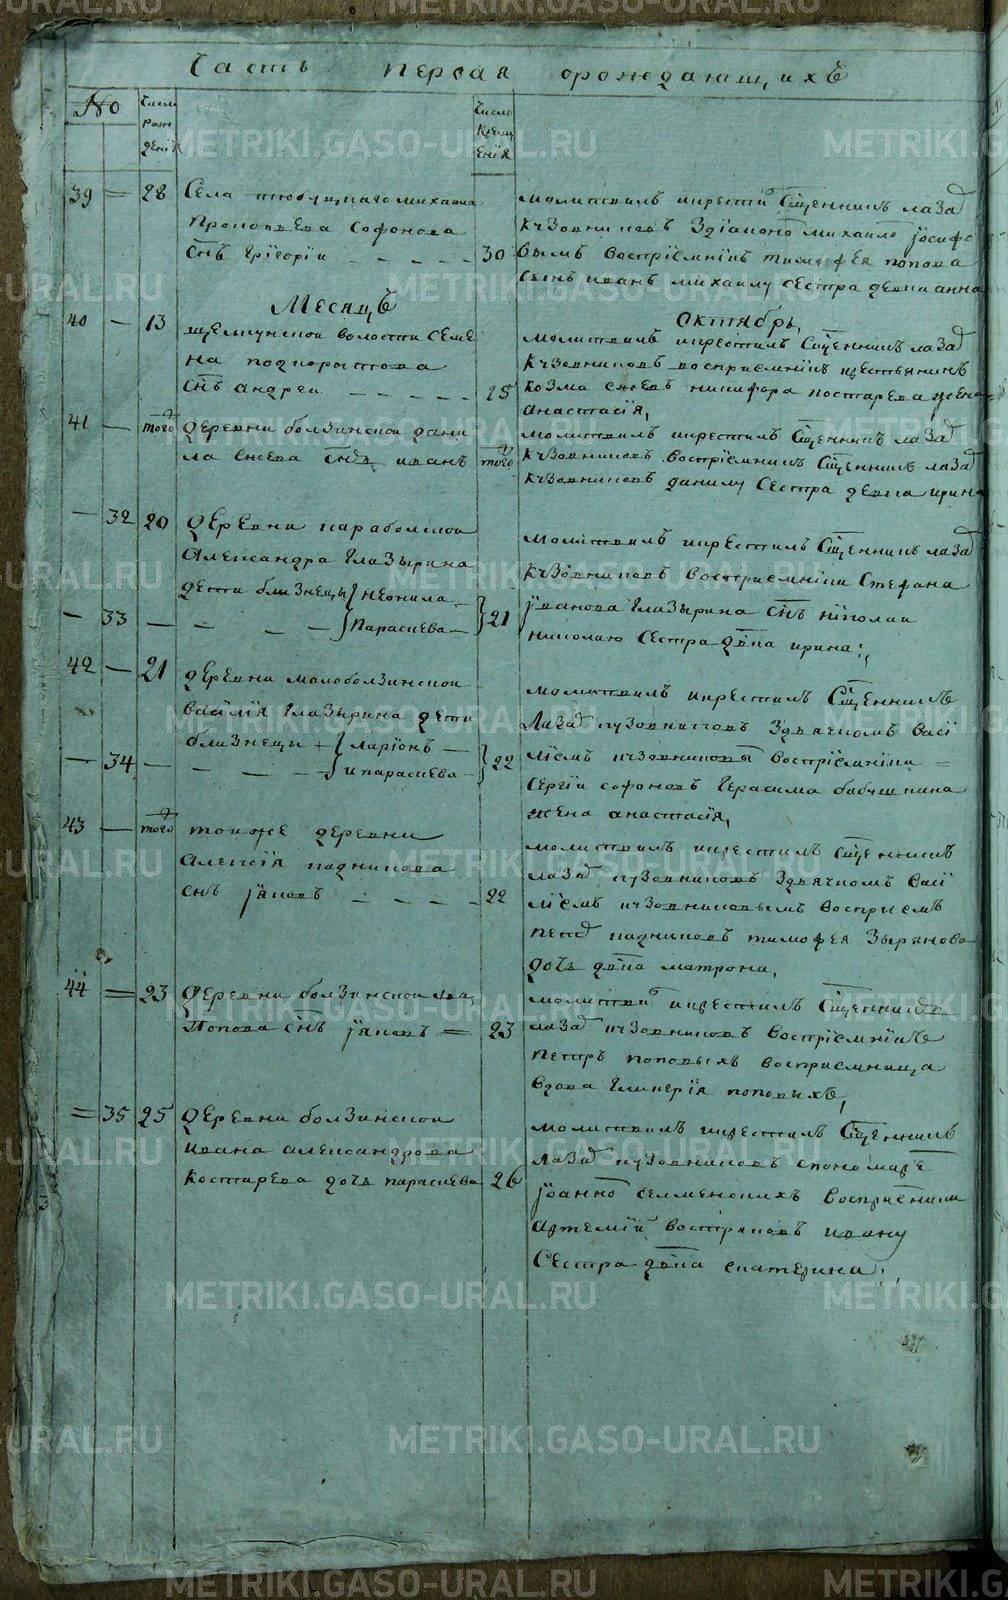 Часть первая орождающихъ
No
Число рождения
Число крещения
39 = 28 Села тюбуцнаго михаила
Прокопьева Софонова
Снъ Григорiи 30
молитвилъ икрестiлъ Сщенникъ лазаd
кузовниковъ Здiакономъ михаило јосифо
вымъ воспрiемнiкъ тимофея попова
Сынъ иванъ михаилу сестра девка анна
Месяцъ
Октябрь,
40 — 13 щелкунской волости семе
на подкорытова
Снъ андреи 15
молитвилъ икрестилъ Сщенникъ лазаd
кузовниковъ восприемнiкъ крестьянинъ
козма енеевъ никифора костарева жена
анастасiя,
41 — того деревни болзинской дани
ла енеева Снъ иванъ того
молитвилъ икрестилъ Сщенникъ лазаd
кузовниковъ воспрiемникъ Сщенникъ лазаd
кузовниковъ данилу Сестра девка ирина
— 32 20 деревни караболской
александра глазырина
дети близнецы неонила
— 33 Параскева 21
молитвилъ икрестилъ Сщенникъ лазаd
кузовниковъ восприемнiки Стефана
јванова глазырина Снъ нiколаи
николаю Сестра дѣвка ирина:,
42 — 21 деревни малоболзинской
васiлiя глазырина дети
близнецы ларiонъ
— 34 и параскева 22
молитвилъ икрестилъ Сщенникъ
лазаd кузовниковъ Здьячкомъ васi
лiемъ кузовниковы воспрiемнiки =
сергiи софоновъ герасима бабушкина
жена анастасiя,
43 — того тоиже деревни
алексiя падникова
снъ јяковъ 22
молитвилъ икрестилъ Сщенникъ
лазаd кузовниковъ Здьячкомъ васi
лiемъ кузовниковымъ восприемъ
петd падниковъ тимофея зырянова
дочь девка матрона,
44 = 23 деревни болзинской
Попова Снъ јяковъ = 23
молитви икрестилъ Сщенникъ
лазаd кузовниковъ воспрiемнiкъ
петръ поповыхъ восприемница
вдова гликерiя поповыхъ,
= 35 25 деревни болзинской
ивана александрова
костарева дочь параскева 26
молитвилъ икрестилъ Сщенникъ
лазаd кузовниковъ спономаремъ
јоанномъ селменскихъ восприемники
артемiй востряковъ ивану
Сестра девка екатерина:,
METRIKI.GASO-URAL.RU